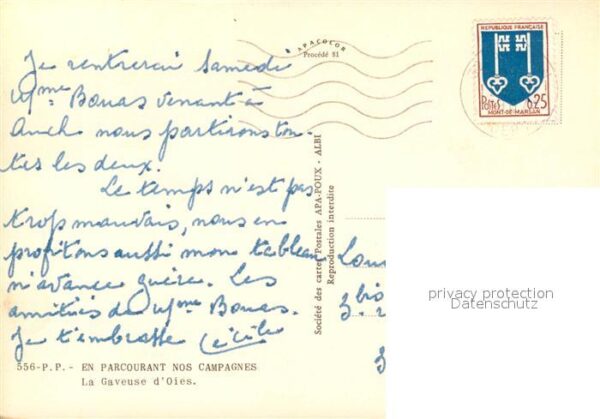 Je rentrerai Samedi
Mme Bouas venant à
Auch nous partirons tou
tes les deux.
Le temps n'est pas
trop mauvais, nous en
profitons aussi mon tableau
n'avance guère. Les
amitiés de Mme Bouas.
Je t'embrasse Cécile
556-P.P. - EN PARCOURANT NOS CAMPAGNES
La Gaveuse d'Oies.
APACOLOR
Procédé 81
Société des cartes Postales APA-POUX - ALBI
Reproduction interdite
REPUBLIQUE FRANÇAISE
POSTES 0,25
MONT-DE-MARSAN
3 bis
privacy protection
Datenschutz